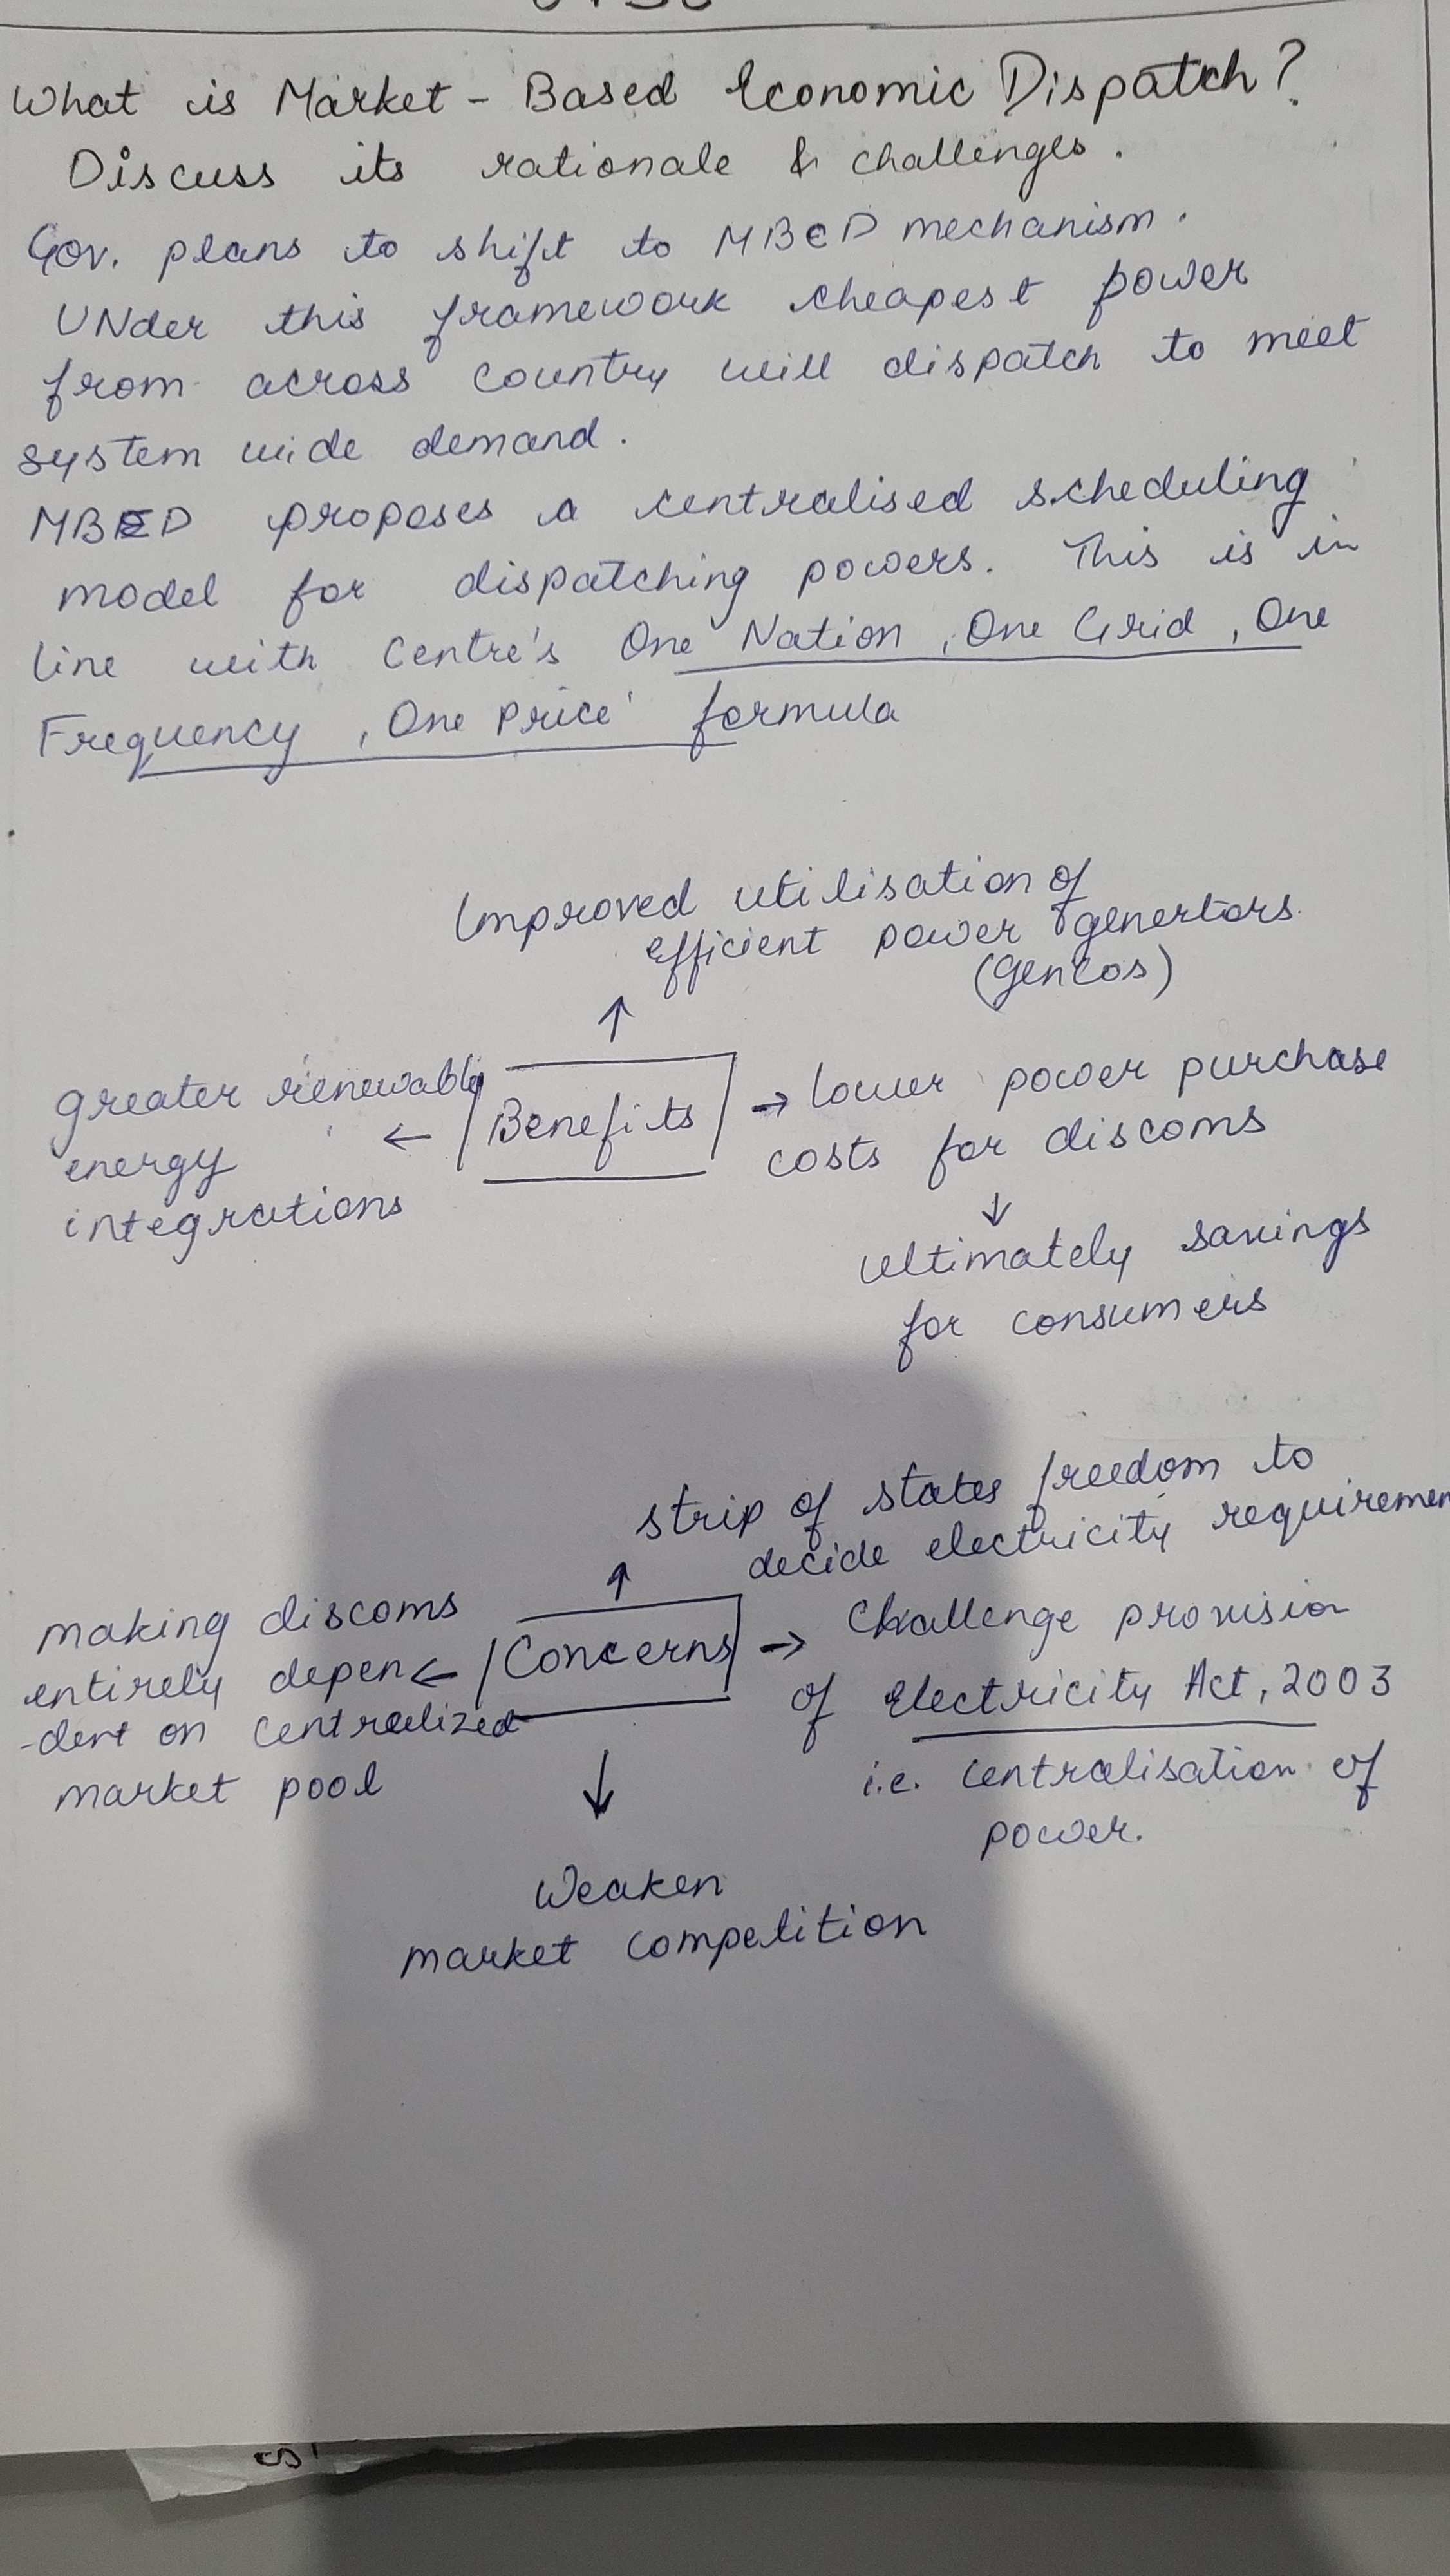 What is Market - Based Economic Dispatch?
Discuss its rationale & challenges.
Gov. plans to shift to MBED mechanism.
Under this framework cheapest power
from across country will dispatch to meet
system wide demand.
MBED proposes a centralised scheduling
model for dispatching powers. This is in
line with Centre's One Nation, One Grid, One
Frequency, One Price' formula
Improved utilisation of
efficient power genertors
(Gencos)
↑
greater renewable
energy
integrations
← Benefits → lower power purchase
costs for discoms
↓
ultimately savings
for consumers
strip of states freedom to
decide electricity requiremen
↑
making discoms
entirely depen
-dent on centralized
market pool
← Concerns → Challenge provision
of Electricity Act, 2003
i.e. centralisation of
power.
↓
Weaken
market competition